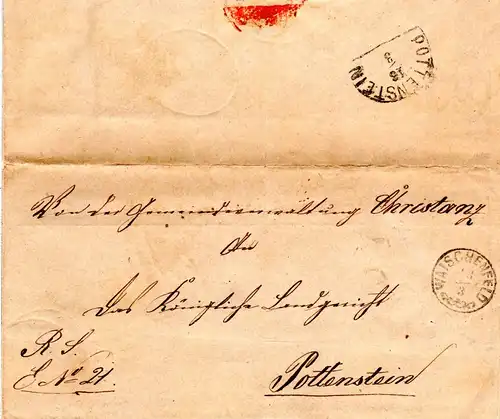 POTTENSTEIN
Von der Gemeindeverwaltung Christanz
An
WAISCHENFELD
Das Königliche Landgericht
R. S.
E. No 21.
Pottenstein